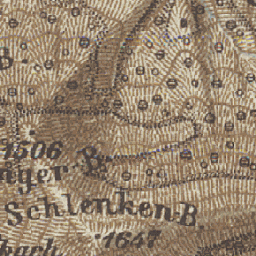 B.
1506
ager-B.
Schlenken-B.
1647
bach